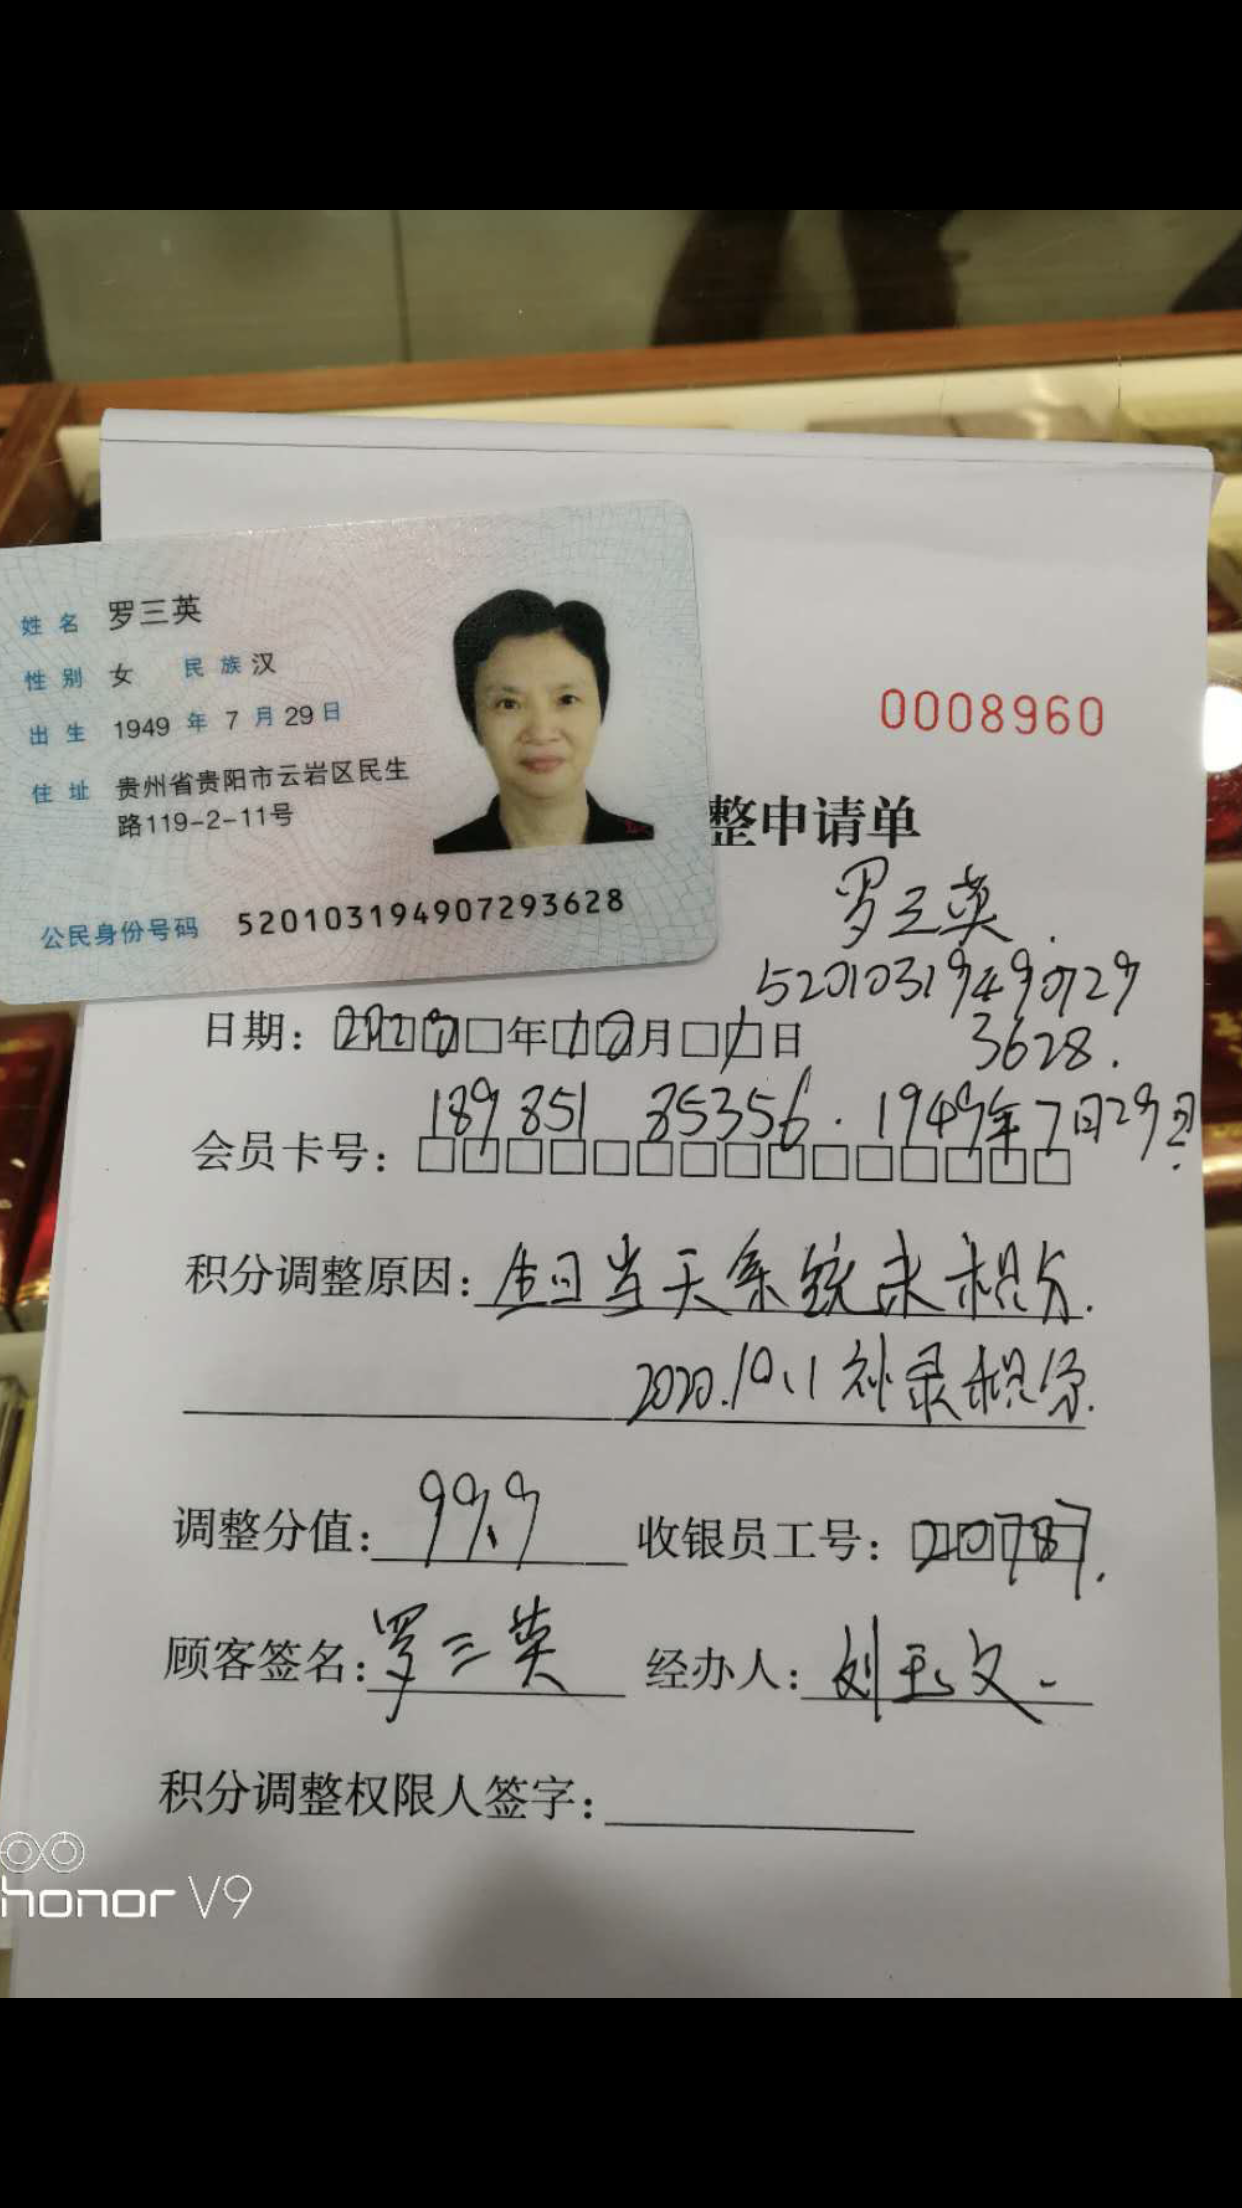 姓名 罗三英
性别 女 民族 汉
出生 1949年7月29日
住址 贵州省贵阳市云岩区民生
路119-2-11号
公民身份号码 520103194907293628
0008960
整申请单
罗三英.
52010319490729
3628.
日期: 2020年10月1日
189 851 85356. 1949年7月29日.
会员卡号:
积分调整原因: 生日当天系统未积分.
2020.10.1补录积分.
调整分值: 99.9 收银员工号: 20787.
顾客签名: 罗三英 经办人: 刘玉文.
积分调整权限人签字:
honor V9